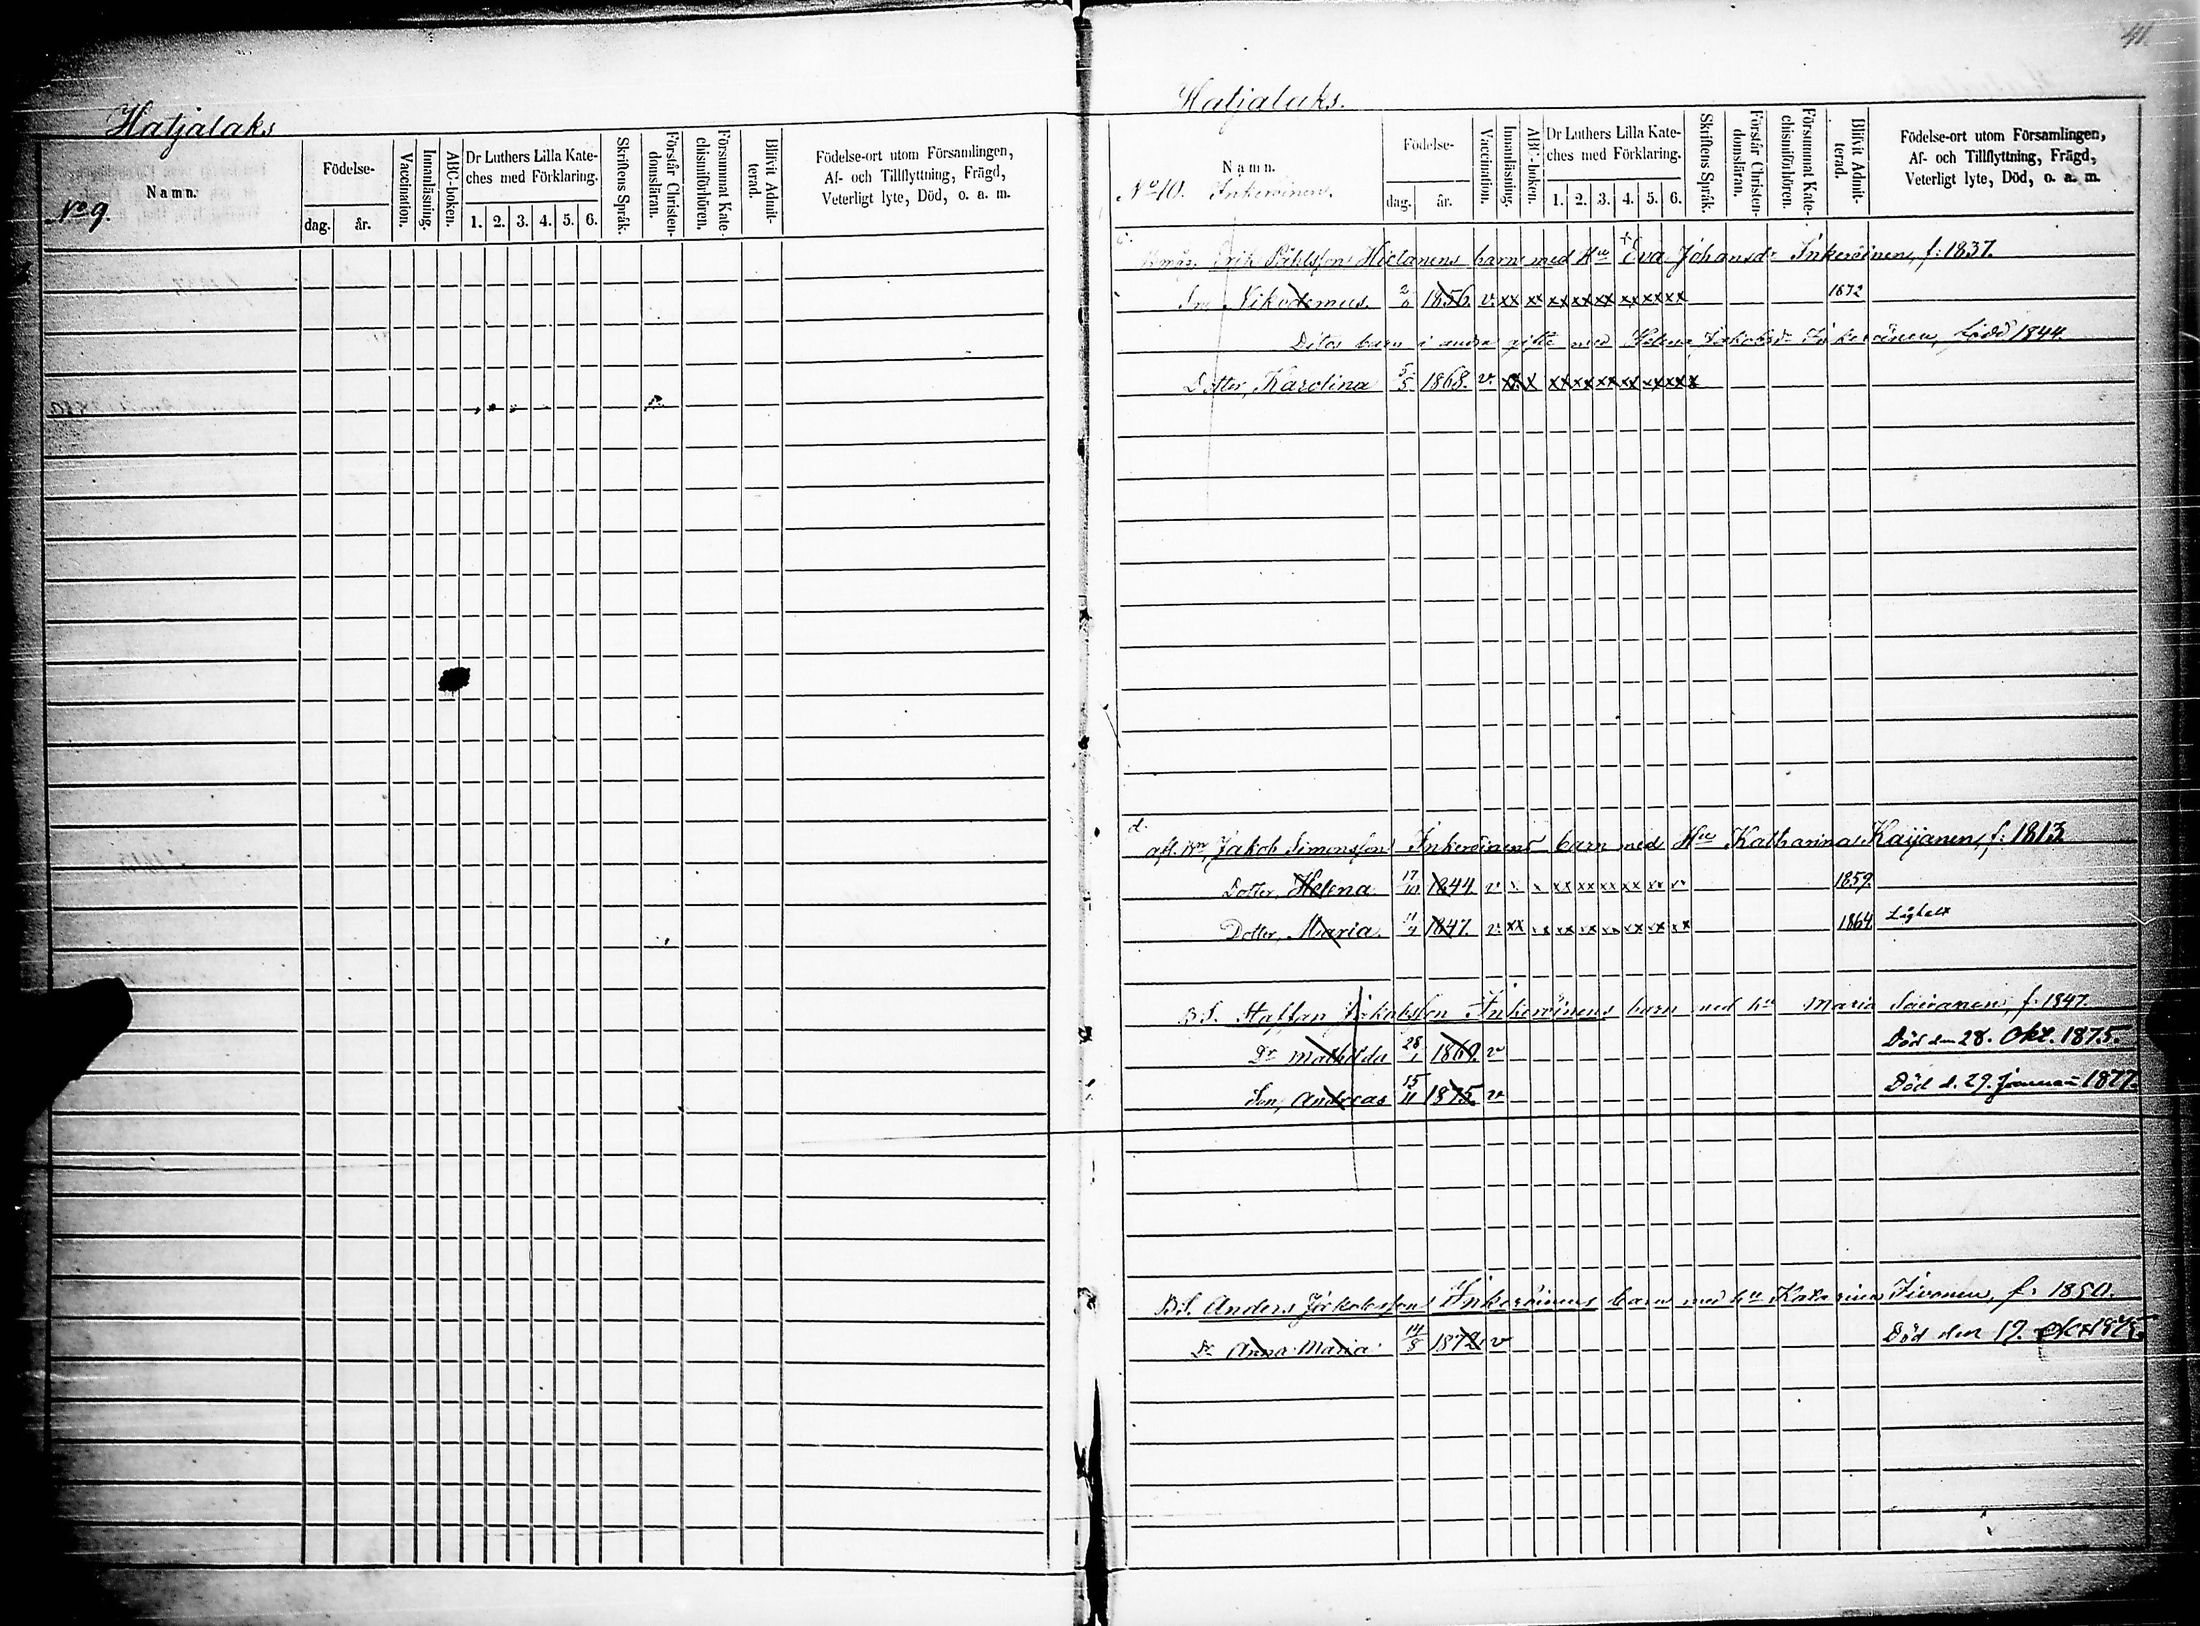 Hatjalaks
Namn.
Födelse-
dag. år.
Vaccination.
Innanläsning.
ABC-boken.
Dr Luthers Lilla Kate-
ches med Förklaring.
1. 2. 3. 4. 5. 6.
Skriftens Språk.
Förstår Christen-
domsläran.
Försummat Kate-
chismiförhören.
Blifvit Admit-
terad.
Födelse-ort utom Församlingen,
Af- och Tillflyttning, Frägd,
Veterligt lyte, Död, o. a. m.
No 9.
41.
Hatjalaks.
Namn.
Födelse-
dag. år.
Vaccination.
Innanläsning.
ABC-boken.
Dr Luthers Lilla Kate-
ches med Förklaring.
1. 2. 3. 4. 5. 6.
Skriftens Språk.
Förstår Christen-
domsläran.
Försummat Kate-
chismiförhören.
Blifvit Admit-
terad.
Födelse-ort utom Församlingen,
Af- och Tillflyttning, Frägd,
Veterligt lyte, Död, o. a. m.
No 10. Inkeroinen.
c.
Erik Påhlsson Hietanens barn med Hu + Eva Johansdr Inkeröinen, f: 1837.
Son, Nikodemus. 1856. v. xx xx xx xx xx xx xx xx 1872
Ditos barn i andra gifte med Helena Jakobsdr Inkeröinen, född 1844.
Dotter, Karolina 5/5 1868. v. xx x xx xx xx xx xx xx x
d.
afl. Bn, Jakob Simonsson Inkeröinens barn med Hu Katharina Kaijanen, f: 1813.
Dotter, Helena 17/10 1844 v x x xx xx xx xx xx xx 1859.
Dotter, Maria. 1847. v. xx xx xx xx xx xx xx xx 1864
BS. Staffan Jakobsson Inkeröinens barn med hu Maria Savanen, f. 1847.
Dr Mathilda 28/1 1869. v Död den 28. Okt. 1875.
Son, Andreas 15/11 1875. v Död d. 29. Januari 1877.
BS. Anders Jakobsson Inkeröinens barn med hu Katarina Sivonen, f. 1850.
Dr Anna Maria 14/8 1872. v Död den 19. Okt